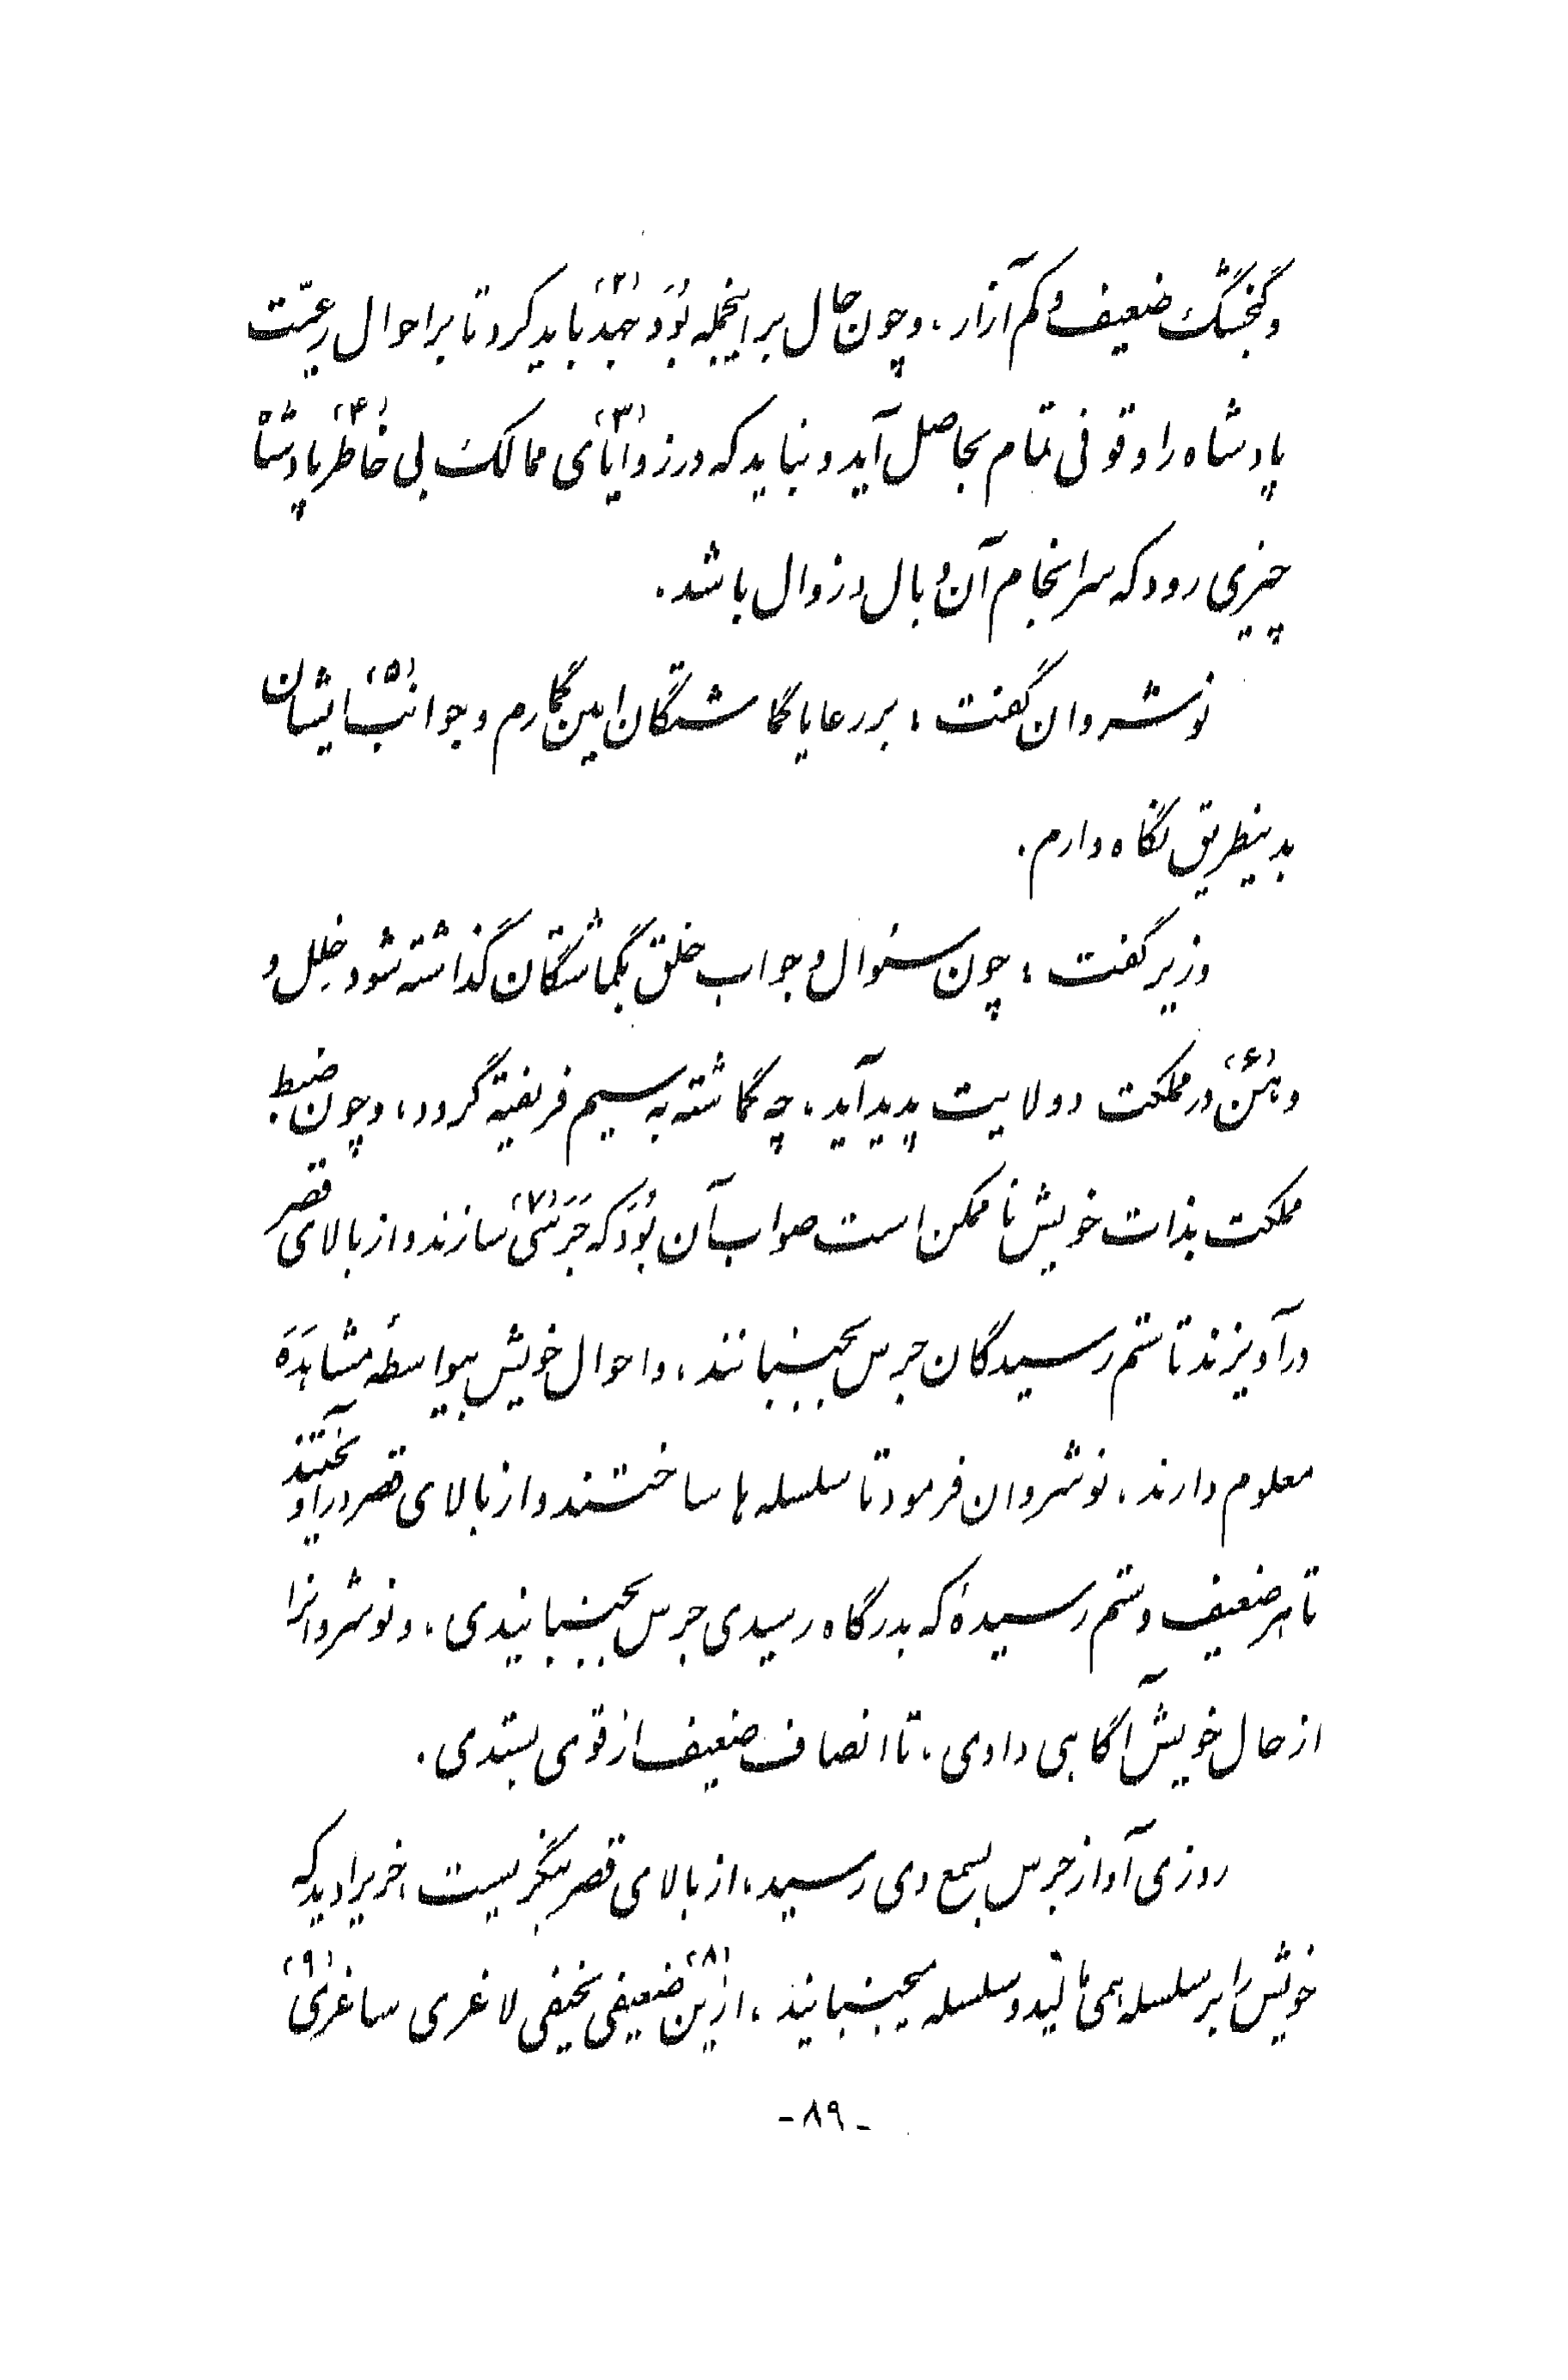 و گنجشگ ضعیف و کم آزار، و چون حال بر اینجمله بُوَد جَهْد (۲) باید کرد تا بر احوال رعیّت
پادشاه را وقوفی تمام بحاصل آید و نباید که در زوایای (۳) ممالک بی خاطر (۴) پادشاه
چیزی رود که سرانجام آن وبال و زوال باشد.
نوشروان گفت: بر رعایا گماشتگان امین گمارم و جوانب (۵) ایشان
بدینطریق نگاه دارم.
وزیر گفت: چون سئوال و جواب خلق بگماشتگان گذاشته شود خلل و
وهن (۶) در مملکت و ولایت پدید آید، چه گماشته به سیم فریفته گردد، و چون ضبط
مملکت بذات خویش ناممکن است صواب آن بُوَد که جَرَسی (۷) سازند و از بالای قصر
درآویزند تا ستم رسیدگان جرس بجنبانند، و احوال خویش بیواسطه مشاهَدَه
معلوم دارند، نوشروان فرمود تا سلسله ها ساختند و از بالای قصر درآویختند
تا هر ضعیف و ستم رسیدهٔ که بدرگاه رسیدی جرس بجنبانیدی، و نوشروانرا
از حال خویش آگاهی دادی، تا انصاف ضعیف از قوی بستدی.
روزی آواز جرس بسمع وی رسید، از بالای قصر بنگریست، خریرا دید که
خویش را بر سلسله همی مالید و سلسله بجنبانید، ازین (۸) ضعیفی نحیفی لاغری ساغری (۹)
-۸۹-